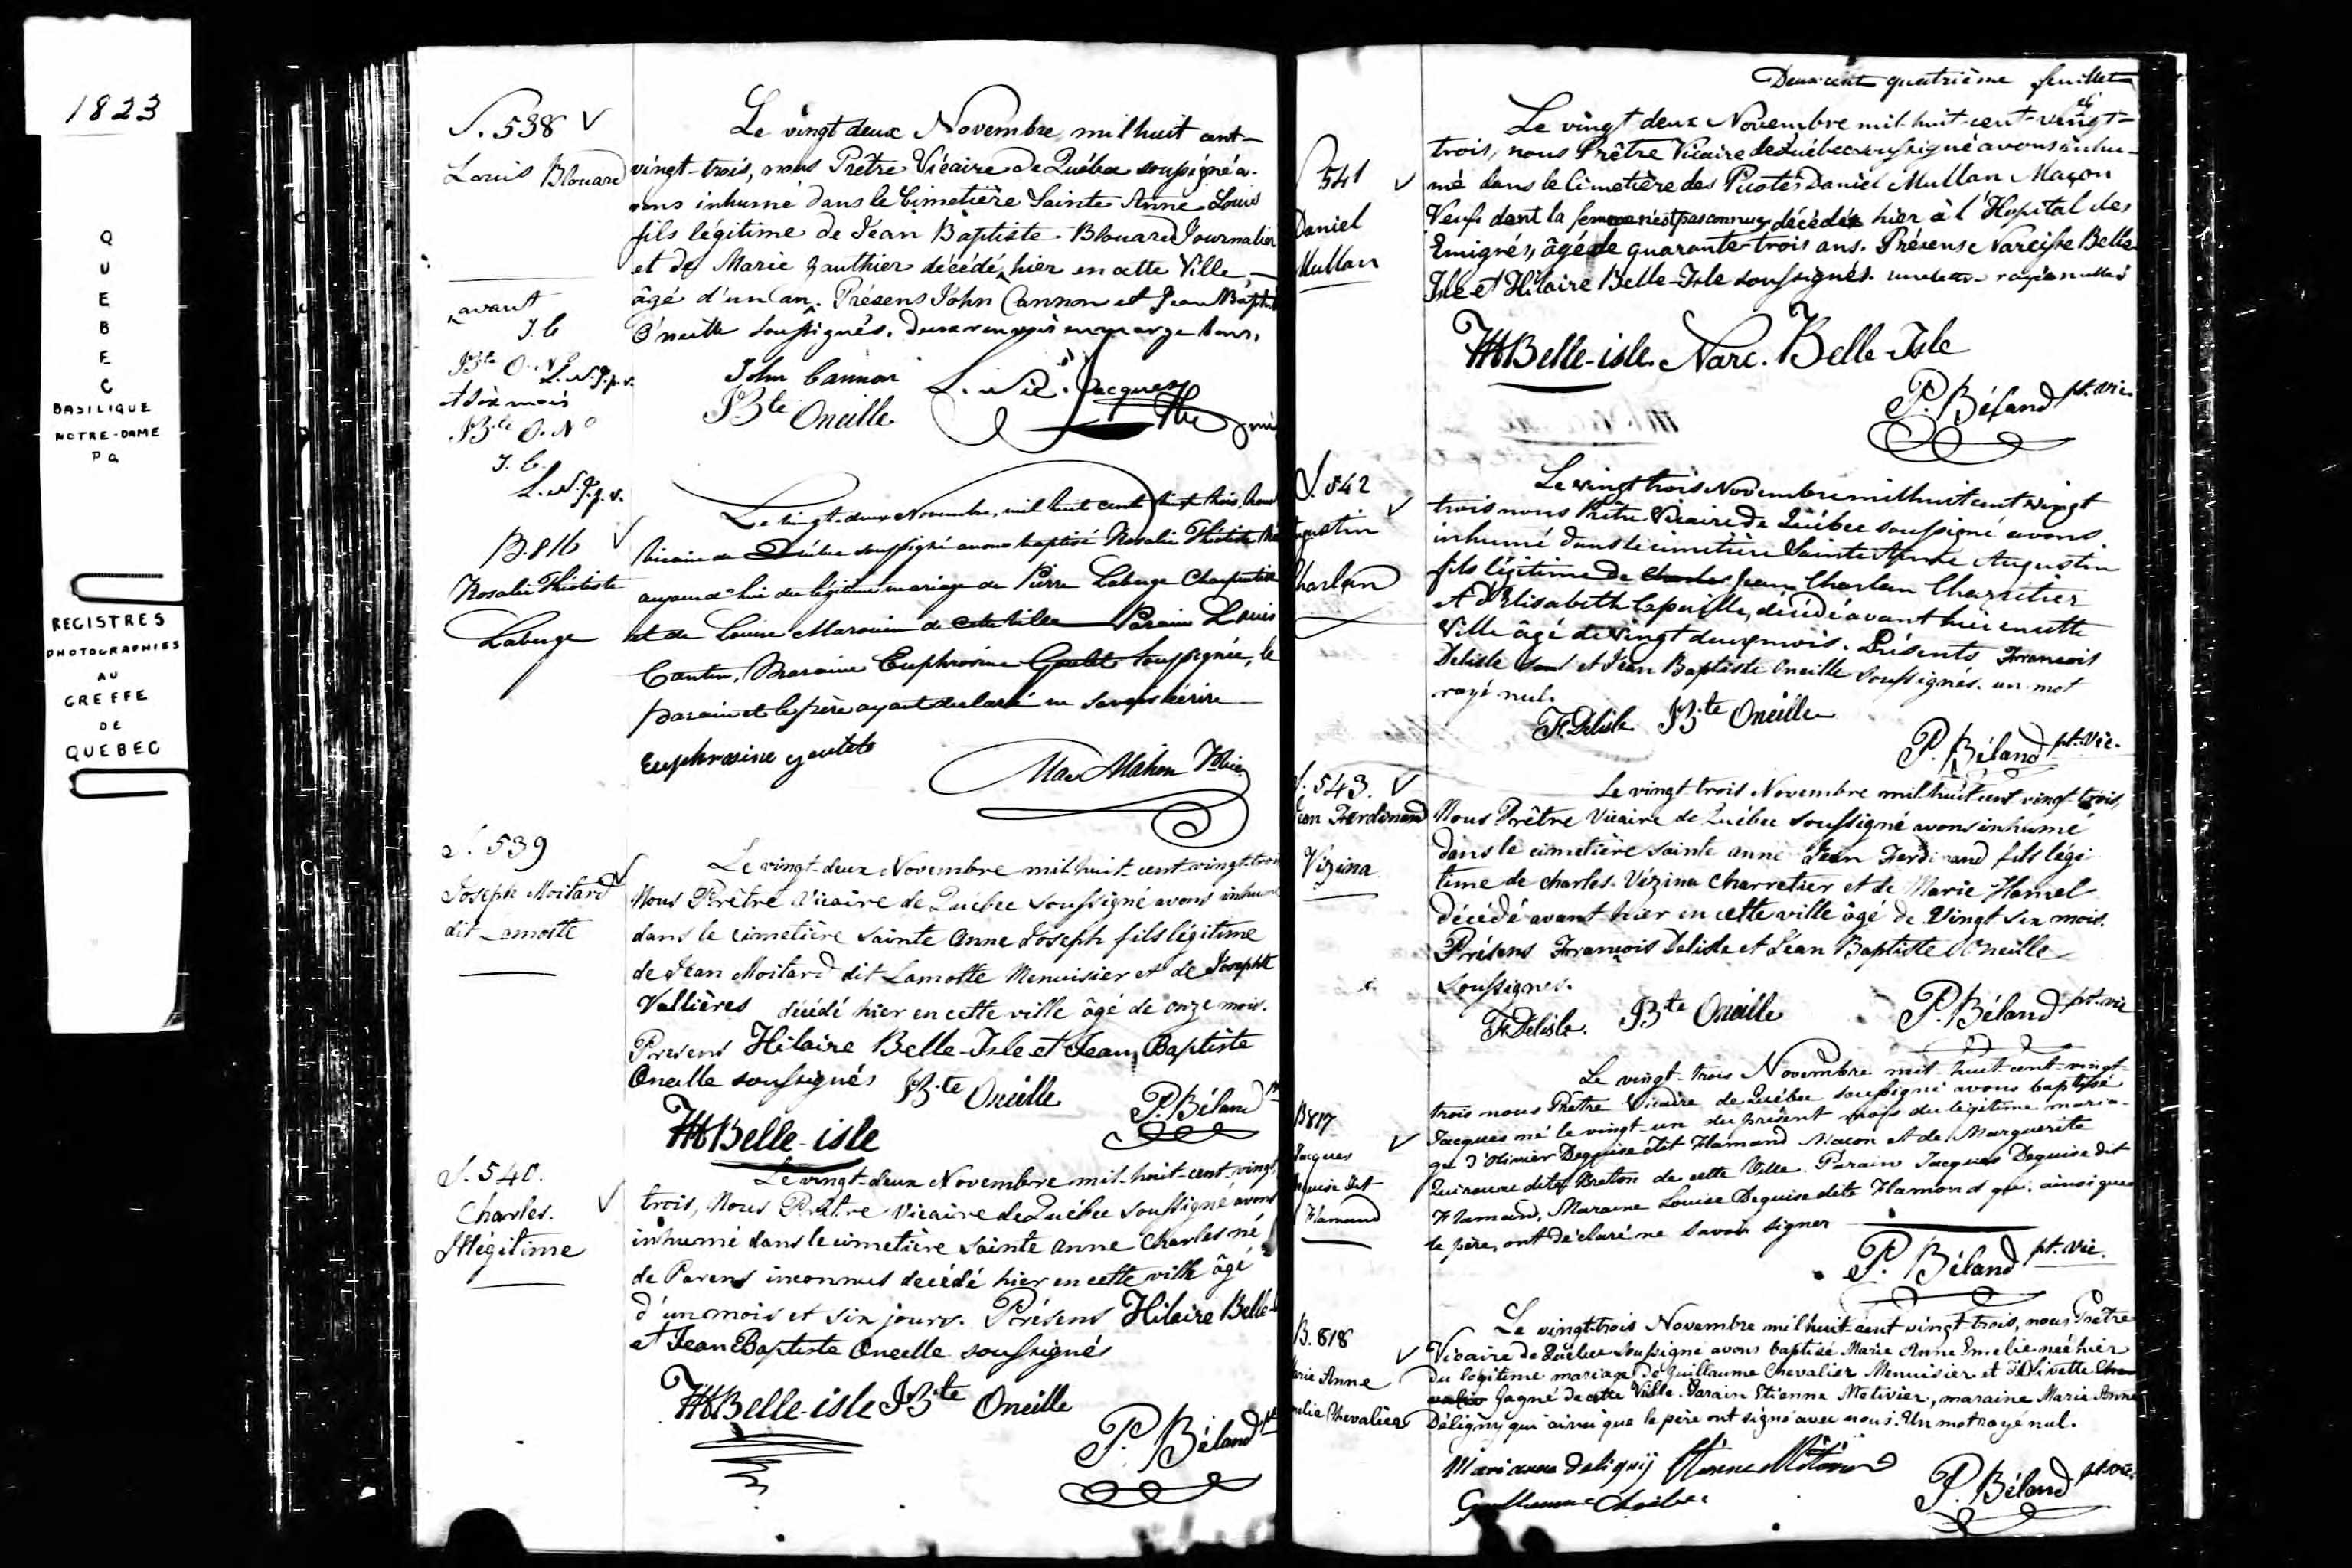 1823
QUEBEC
BASILIQUE
NOTRE-DAME
P Q
REGISTRES
PHOTOGRAPHIES
AU
GREFFE
DE
QUEBEC
S. 538
Louis Blouard
Le vingt deux Novembre mil huit cent-
vingt-trois, nous Prêtre Vicaire de Québec soussigné a-
vons inhumé dans le Cimetière Sainte Anne Louis
fils légitime de Jean Baptiste Blouard Journalier
et de Marie Gauthier décédé hier en cette Ville
âgé d'un an. Présens John Cannon et Jean Baptiste
O'neille soussignés. deux renvois en marge bons.
avant
J. C
Bte O. N
L. N. J. p. v.
et six mois
Bte O. N
J. C.
L. N. J. p. v.
John Cannon
Bte Oneille
B. 816
Rosalie Thiotiste
Laberge
Le vingt-deux Novembre mil huit cent vingt trois, nous
Vicaire de Québec soussigné avons baptisé Rosalie Thiotiste née
aujourd'hui du légitime mariage de Pierre Laberge Charpentier
et de Louise Marouin de cette ville Parain Louis
Cantin, Maraine Euphrosine Goulet soussignée, le
parain et le père ayant declaré ne savoir écrire
Euphrosine goulet
Mac Mahon Ptre Vic
S. 539
Joseph Moitard
dit Lamotte
Le vingt-deux Novembre mil huit-cent-vingt-trois
Nous Prêtre Vicaire de Québec soussigné avons inhumé
dans le cimetière Sainte Anne Joseph fils légitime
de Jean Moitard dit Lamotte Menuisier et de Josephte
Vallières décédé hier en cette ville âgé de onze mois.
Presens Hilaire Belle-Isle et Jean Baptiste
Oneille soussignés
Bte Oneille
HBelle-isle
P. Béland
S. 540.
Charles.
Illégitime
Le vingt-deux Novembre mil-huit-cent-vingt
trois, Nous Prêtre Vicaire de Québec soussigné avons
inhumé dans le cimetière sainte anne Charles né
de Parens inconnus decédé hier en cette ville âgé
d'un mois et six jours. Présens Hilaire Belle-
et Jean Baptiste Oneille soussignés
HBelle-isle Bte Oneille
P. Béland
Deux cent quatrième feuillet
541
Daniel
Mullan
Le vingt deux Novembre mil-huit-cent-vingt-
trois, nous Prêtre Vicaire de Québec soussigné avons inhu-
mé dans le Cimetière des Picotés Daniel Mullan Maçon
Veuf dont la femme n'est pas connue, décédé hier à l'Hopital des
Emigrés, âgé de quarante-trois ans. Présens Narcisse Belle
Isle et Hilaire Belle-Isle soussignés. une lettre rayée nulle
HBelle-isle. Narc. Belle-Isle
P. Béland pt. vic.
S. 542
Augustin
Charlan
Le vingt trois Novembre mil huit cent vingt
trois nous Prêtre Vicaire de Québec soussigné avons
inhumé dans le cimetière Sainte Anne Augustin
fils légitime de Charles Jean Charlan Charretier
et d'Elisabeth Lapaille, décédé avant hier en cette
Ville âgé de vingt deux mois. Présents Francois
Delisle et Jean Baptiste Oneille soussignés. un mot
rayé nul.
F. Delisle Bte Oneille
P. Béland pt. vic.
S. 543.
Jean Ferdinand
Vézina
Le vingt-trois Novembre mil-huit cent vingt-trois,
Nous Prêtre Vicaire de Québec soussigné avons inhumé
dans le cimetière sainte anne Jean Ferdinand fils légi
time de charles Vézina Charretier et de Marie Hamel
décédé avant-hier en cette ville âgé de Vingt six mois.
Présens François Delisle et Jean Baptiste O'neille
soussignés.
F. Delisle. Bte Oneille
P. Béland pt. vic
B817
Jacques
Deguise dit
Flamand
Le vingt-trois Novembre mil-huit-cent-vingt-
trois nous Prêtre Vicaire de Québec soussigné avons baptisé
Jacques né le vingt-un du présent mois du légitime maria-
ge d'Olivier Deguise dit Flamand Maçon et de Marguerite
dite Breton de cette Ville. Parain Jacques Deguise dit
Flamand, Maraine Louise Deguise dite Flamand qui, ainsi que
le père, ont déclaré ne savoir signer
P. Béland pt. vic.
B. 818
Marie Anne
Emelie Chevalier
Le vingt-trois Novembre mil huit-cent vingt-trois, nous Prêtre
Vicaire de Québec soussigné avons baptisé Marie Anne Emelie née hier
du légitime mariage de Guillaume Chevalier Menuisier et d'Olivette Che-
valier Gagné de cette Ville. Parain Etienne Metivier, maraine Marie Anne
Déligny qui ainsi que le père ont signé avec nous. Un mot rayé nul.
Marianne deligny Etienne Métivier
P. Béland pt. vic.